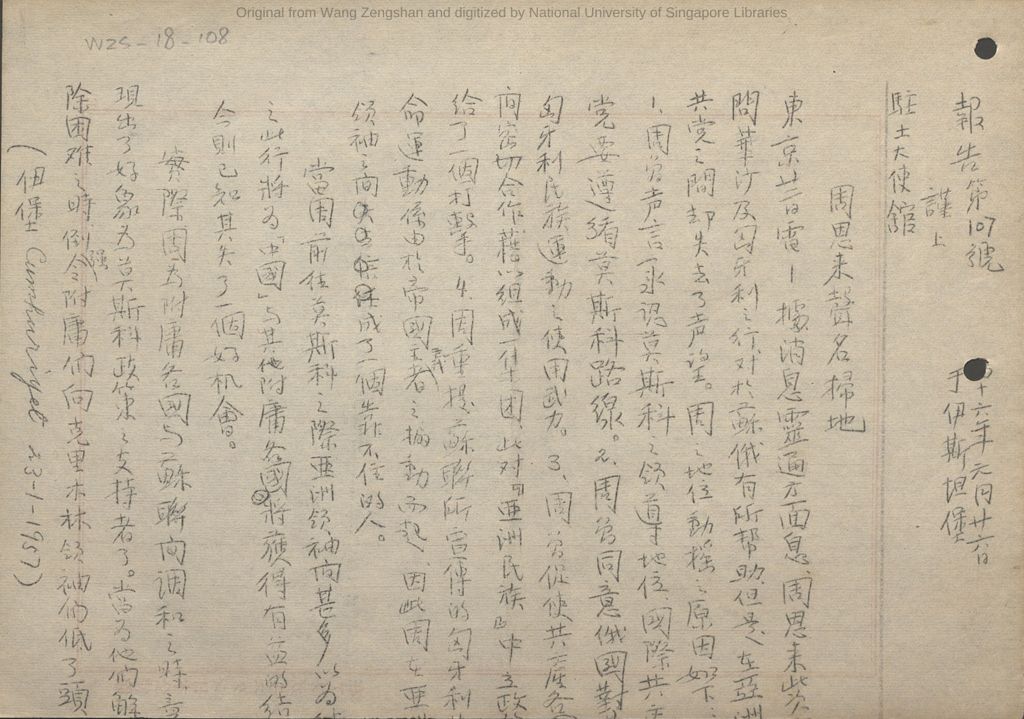 Original from Wang Zengshan and digitized by National University of Singapore Libraries
WZS-18-108
報告第107號
謹上
駐土大使館
四十六年元月廿六日
于伊斯坦堡
周恩来聲名掃地
東京廿二日電—據消息靈通方面息、周恩来此次
問華沙及匈牙利之行对於蘇俄有所帮助、但是、在亞洲
共党之間却失去了声望。周之地位動搖之原因如下:
1、周曾声言承認莫斯科之領導地位、國際共产
党要遵循莫斯科路線。2、周曾同意俄國對
匈牙利民族運動之使用武力。3、周曾促使共産各国
间密切合作藉以組成一集团、此对『亜洲民族』中立政
給了一個打擊。4、周重提蘇聯所宣傳的匈牙利
命運動係由於帝國主義者之煽動而起、因此周在亜
领袖之间成了一個靠不住的人。
當周前往莫斯科之際亜洲领袖间甚多以为
之此行將为「中國」与其他附庸各國將獲得有益的结
今則已知其失了一個好机會。
實際周为附庸各國与蘇聯间調和之時、
現出了好象为莫斯科政策之支持者了。當为他們解
除困难之時、倒強令附庸們向克里木林领袖們低了頭
(伊堡 Cumhuriyet 23-1-1957)